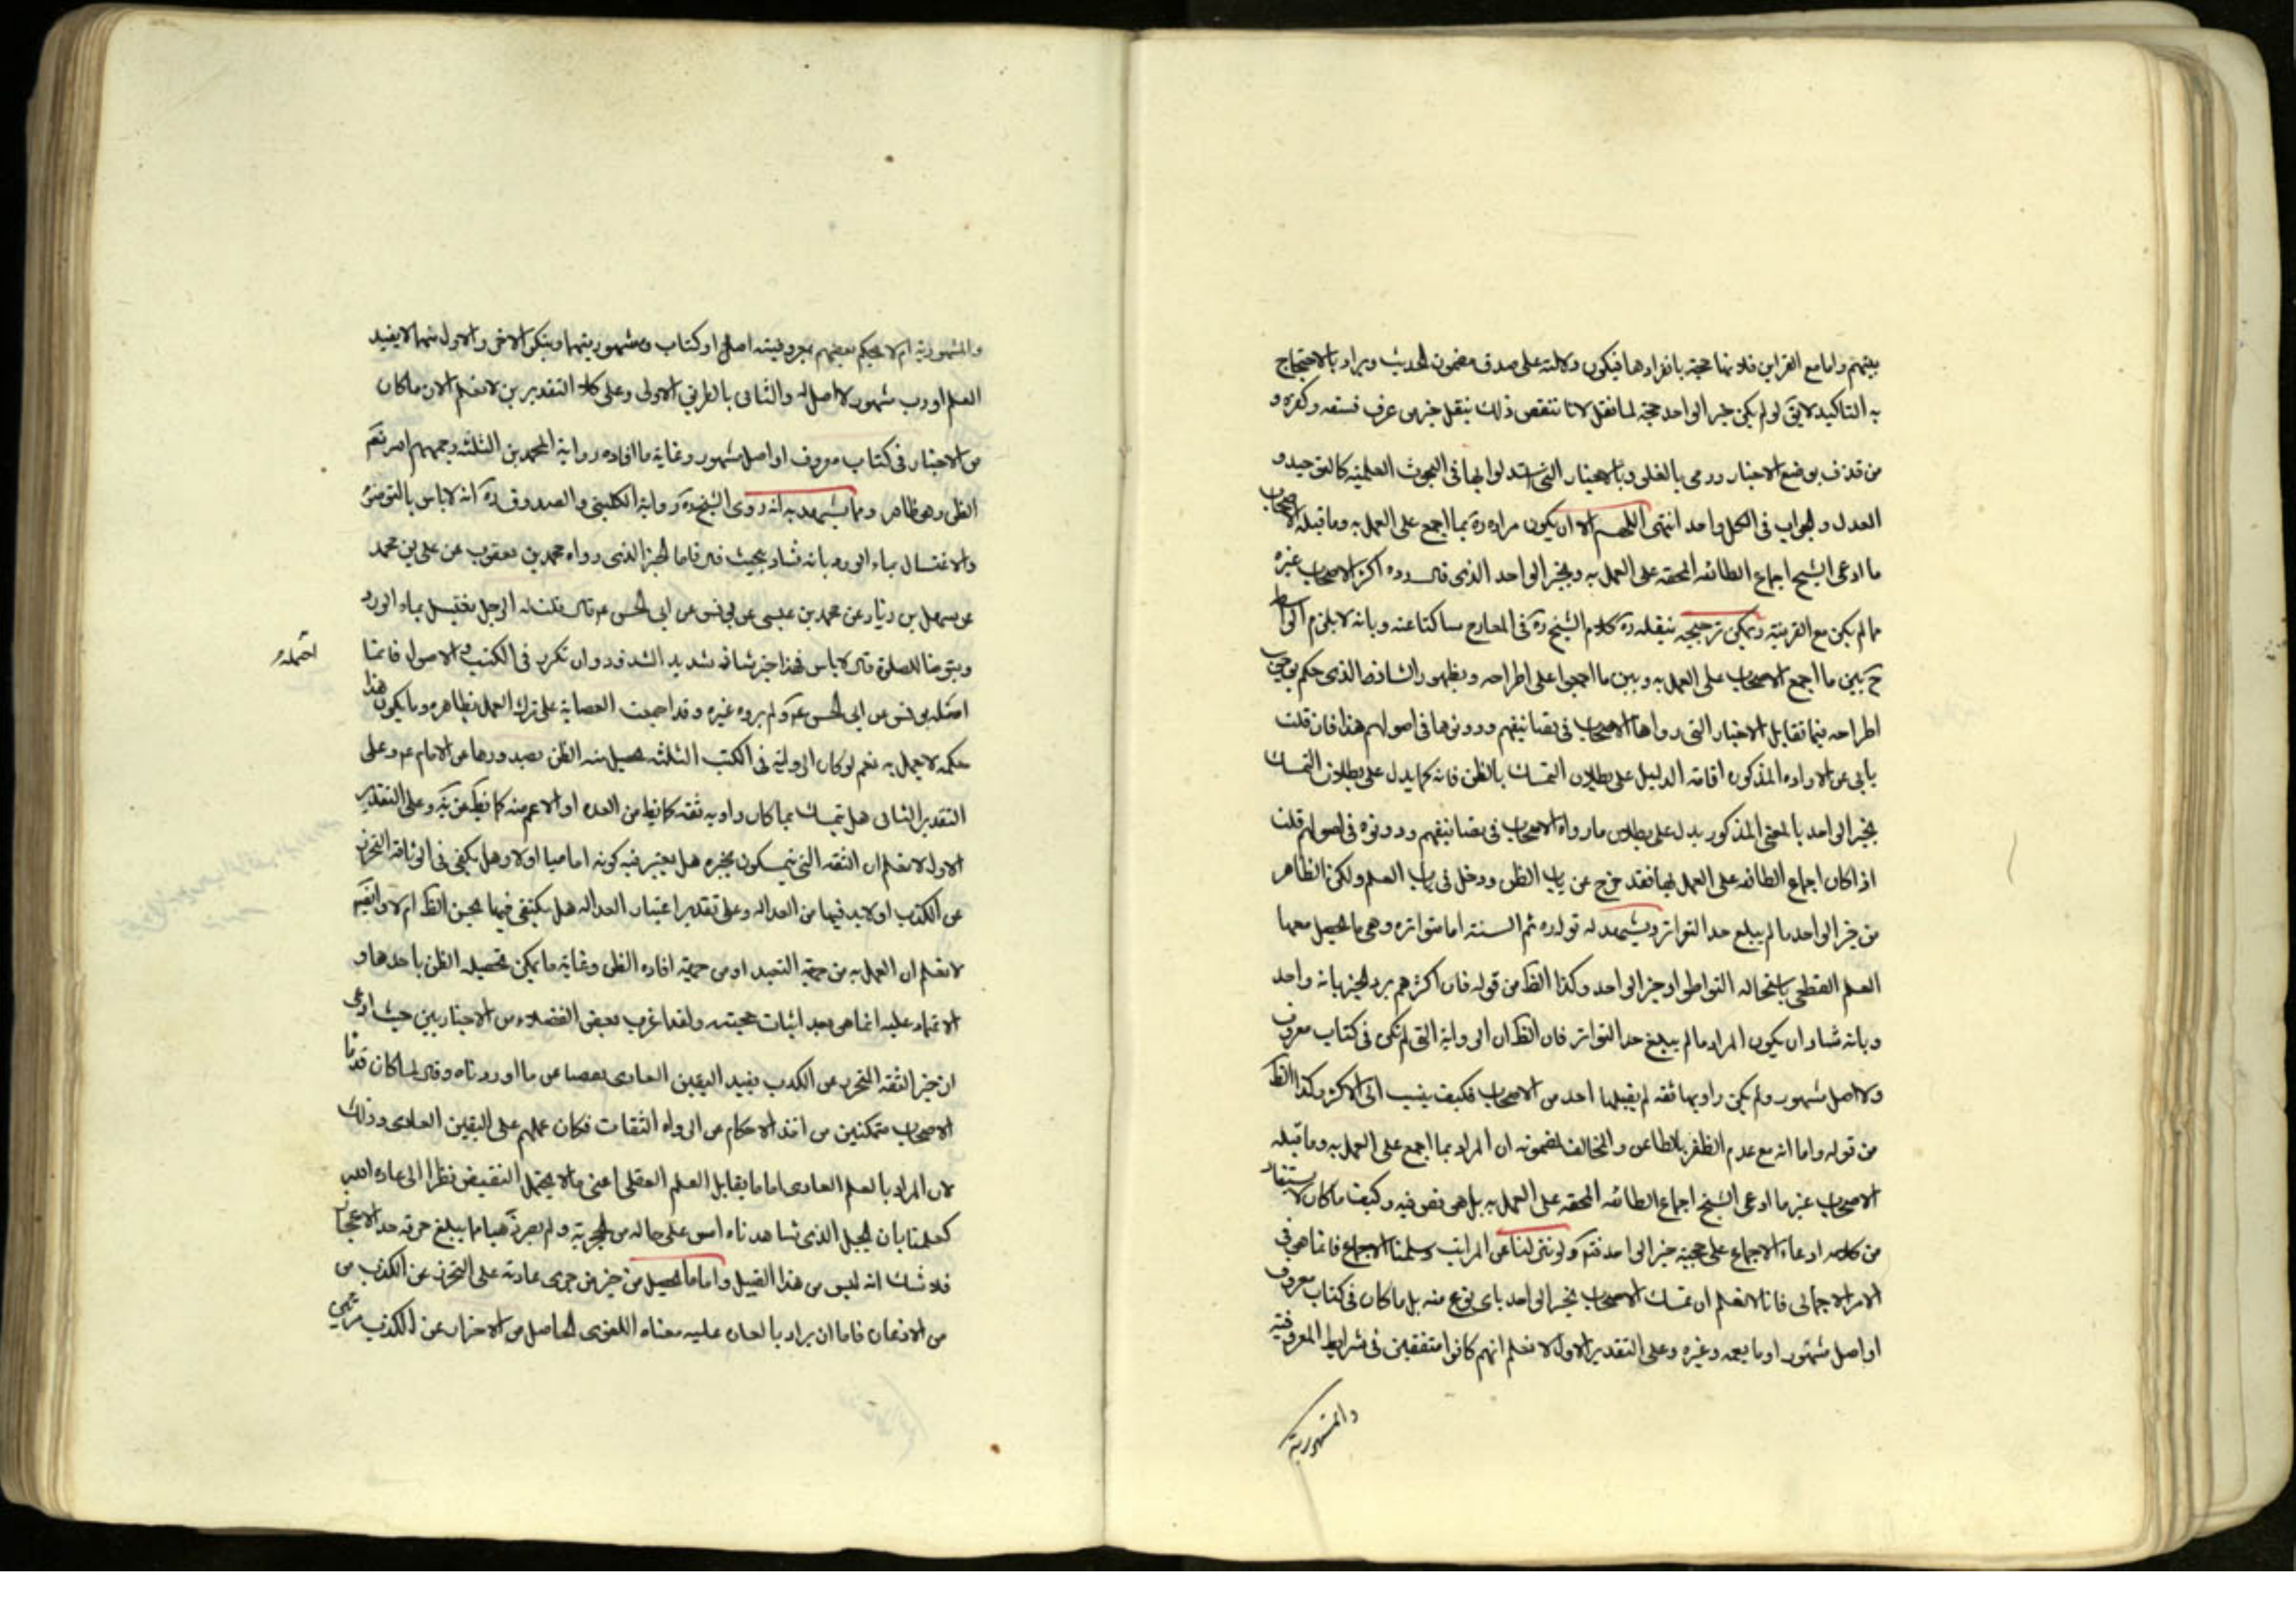 بينهم واما مع القراين فلانها حجة بانفرادها فيكون دلالته على صدق مضمون الحديث ويراد بالاحتجاج
به التاكيد لايق لو لم يكن خبر الواحد حجة لما نقل لانا ننقض ذلك بنقل خبر من عرف فسقه وكفره و
من قذف بوضع الاخبار ورمى بالغلو وبالاخبار التي استدلوا بها في البحوث العلمية كالتوحيد و
العدل والجواب في الكل واحد انتهى اللهم الا ان يكون مراده ره بما اجمع على العمل به وما قبله الاصحاب
ما ادعى الشيخ اجماع الطائفه المحقه على العمل به وبخبر الواحد الذي قال رده اكثر الاصحاب غيره
ما لم يكن مع القرينة ويمكن ترجيحه بنقله ره كلام الشيخ ره في المعارج ساكتا عنه وبانه لا يلزم الواسطة
ح بين ما اجمع الاصحاب على العمل به وبين ما اجمعوا على اطراحه وبظهور الشاذ الذي حكم بوجوب
اطراحه فيما تقابل الاخبار التي رواها الاصحاب في تصانيفهم ودونوها في اصولهم هذا فان قلت
يابى عن الاراده المذكوره اقامة الدليل على بطلان التمسك بالظن فانه كما يدل على بطلان التمسك
بخبر الواحد بالمعنى المذكور يدل على بطلان ما رواه الاصحاب في تصانيفهم ودونوه في اصولهم قلت
اذا كان اجماع الطائفه على العمل بها فقد خرج عن باب الظن ودخل في باب العلم ولكن الظاهر
من خبر الواحد ما لم يبلغ حد التواتر ويشهد له قوله ره ثم السنة اما متواتره وهي ما يحصل معها
العلم القطعي باستحاله التواطؤ او خبر الواحد وكذا الظ من قوله فان اكثرهم يرد الخبر بانه واحد
وبانه شاذ ان يكون المراد ما لم يبلغ حد التواتر فان الظ ان الرواية التي لم تكن في كتاب معروف
ولا اصل مشهور ولم يكن راويها ثقه لم يقبلها احد من الاصحاب فكيف ينسب الى الاكثر وكذا الظ
من قوله واما انه مع عدم الظفر بالطاعن والمخالف لمضمونه ان المراد بما اجمع على العمل به وما قبله
الاصحاب غير ما ادعى الشيخ اجماع الطائفه المحقه على العمل به بل هي نص فيه وكيف ما كان لا يستفاد
من كلامه ادعاء الاجماع على حجية خبر الواحد فتم ولو تنزلنا عن المراتب وسلمنا الاجماع فانما هي في
الامر الاجمالي فانا لا نعلم ان تمسك الاصحاب بخبر الواحد باى نوع منه بل ما كان في كتاب معروف
او اصل مشهور او ما يعمه وغيره وعلى التقدير الاول لا نعلم انهم كانوا متفقين في شرايط المعروفية
والمشهورية
والمشهورية ام لا يحكم بعضهم بمعروفية اصل او كتاب ومشهوريتهما وينكر الاخر والاول منهما لا يفيد
العلم اورب مشهور لا اصل له والثاني بالطريق الاولى وعلى كلا التقديرين لا نعلم الان ما كان
من الاخبار في كتاب معروف او اصل مشهور وغاية ما افاده رواية المحمدين الثلثه رحمهم الله نعم
الظن وهو ظاهر ومما يشهد به انه روى الشيخ ره رواية الكليني والصدوق ره انه لا باس بالتوضؤ
والاغتسال بماء الورد بانه شاذ بحيث قال فاما الخبر الذي رواه محمد بن يعقوب عن علي بن محمد
عن سهل بن زياد عن محمد بن عيسى عن يونس عن ابي الحسن ع قال قلت له الرجل يغتسل بماء الورد
ويتوضا للصلوة قال لا باس فهذا خبر شاذ شديد الشذوذ وان تكرر في الكتب والاصول فانما
احمد
اصله يونس عن ابي الحسن ع ولم يروه غيره وقد اجمعت العصابة على ترك العمل بظاهره وما يكون هذا
حكمه لا يعمل به نعم لو كان الرواية في الكتب الثلثه يحصل منه الظن بصدورها عن الامام ع وعلى
التقدير الثاني هل تمسك بما كان راويه ثقه كما يظ من العده او الاعم منه كما يظ من غيره وعلى التقدير
الاول لا نعلم ان الثقه التي يتمسكون بخبره هل يعتبر فيه كونه اماميا او لا وهل يكفي في الوثاقة التحرز
عن الكذب او لا بد فيها من العداله وعلى تقدير اعتبار العداله هل يكتفى فيها بحسن الظ ام لا وايضا
لا نعلم ان العمل به من جهة التعبد او من جهة افاده الظن وغاية ما يمكن تحصيله الظن باحدها و
الاعتماد عليه انما هي بعد اثبات حجيته ولقد اغرب بعض الفضلاء من الاخباريين حيث ادعى
ان خبر الثقه المتحرز عن الكذب يفيد اليقين العادى بعضا عن ما اوردناه وقال لما كان قدما
الاصحاب متمكنين من اخذ الاحكام عن الرواه الثقات فكان عملهم على اليقين العادى وذلك
لان المراد بالعلم العادى اما ما يقابل العلم العقلي اعني ما لا يحتمل النقيض نظرا الى عادة الله
كعلمنا بان الجبل الذي شاهدناه امس على حاله من الحجرية ولم يصر ذهبا ما يبلغ خرقه حد الاعجاز
فلا شك انه ليس من هذا القبيل واما ما يحصل من خبر من جرى عادته على التحرز عن الكذب من
من الاذعان فاما ان يراد بالعادى عليه معناه اللغوى الحاصل من الاحتراز عن الكذب